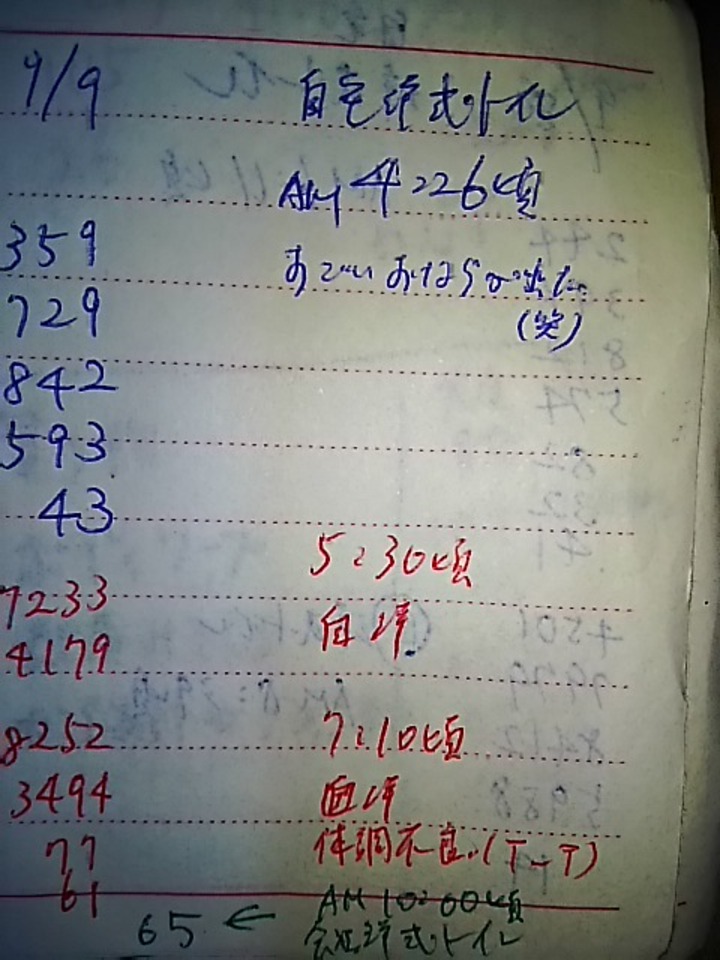 9/9 自宅洋式トイレ
AM 4:26頃
359
すごいおならが出た
729
(笑)
842
593
43
5:30頃
7233
自洋
4179
8252 7:10頃
3494
77 体調不良(T-T)
61
65 ← AM 10:00頃
会社洋式トイレ